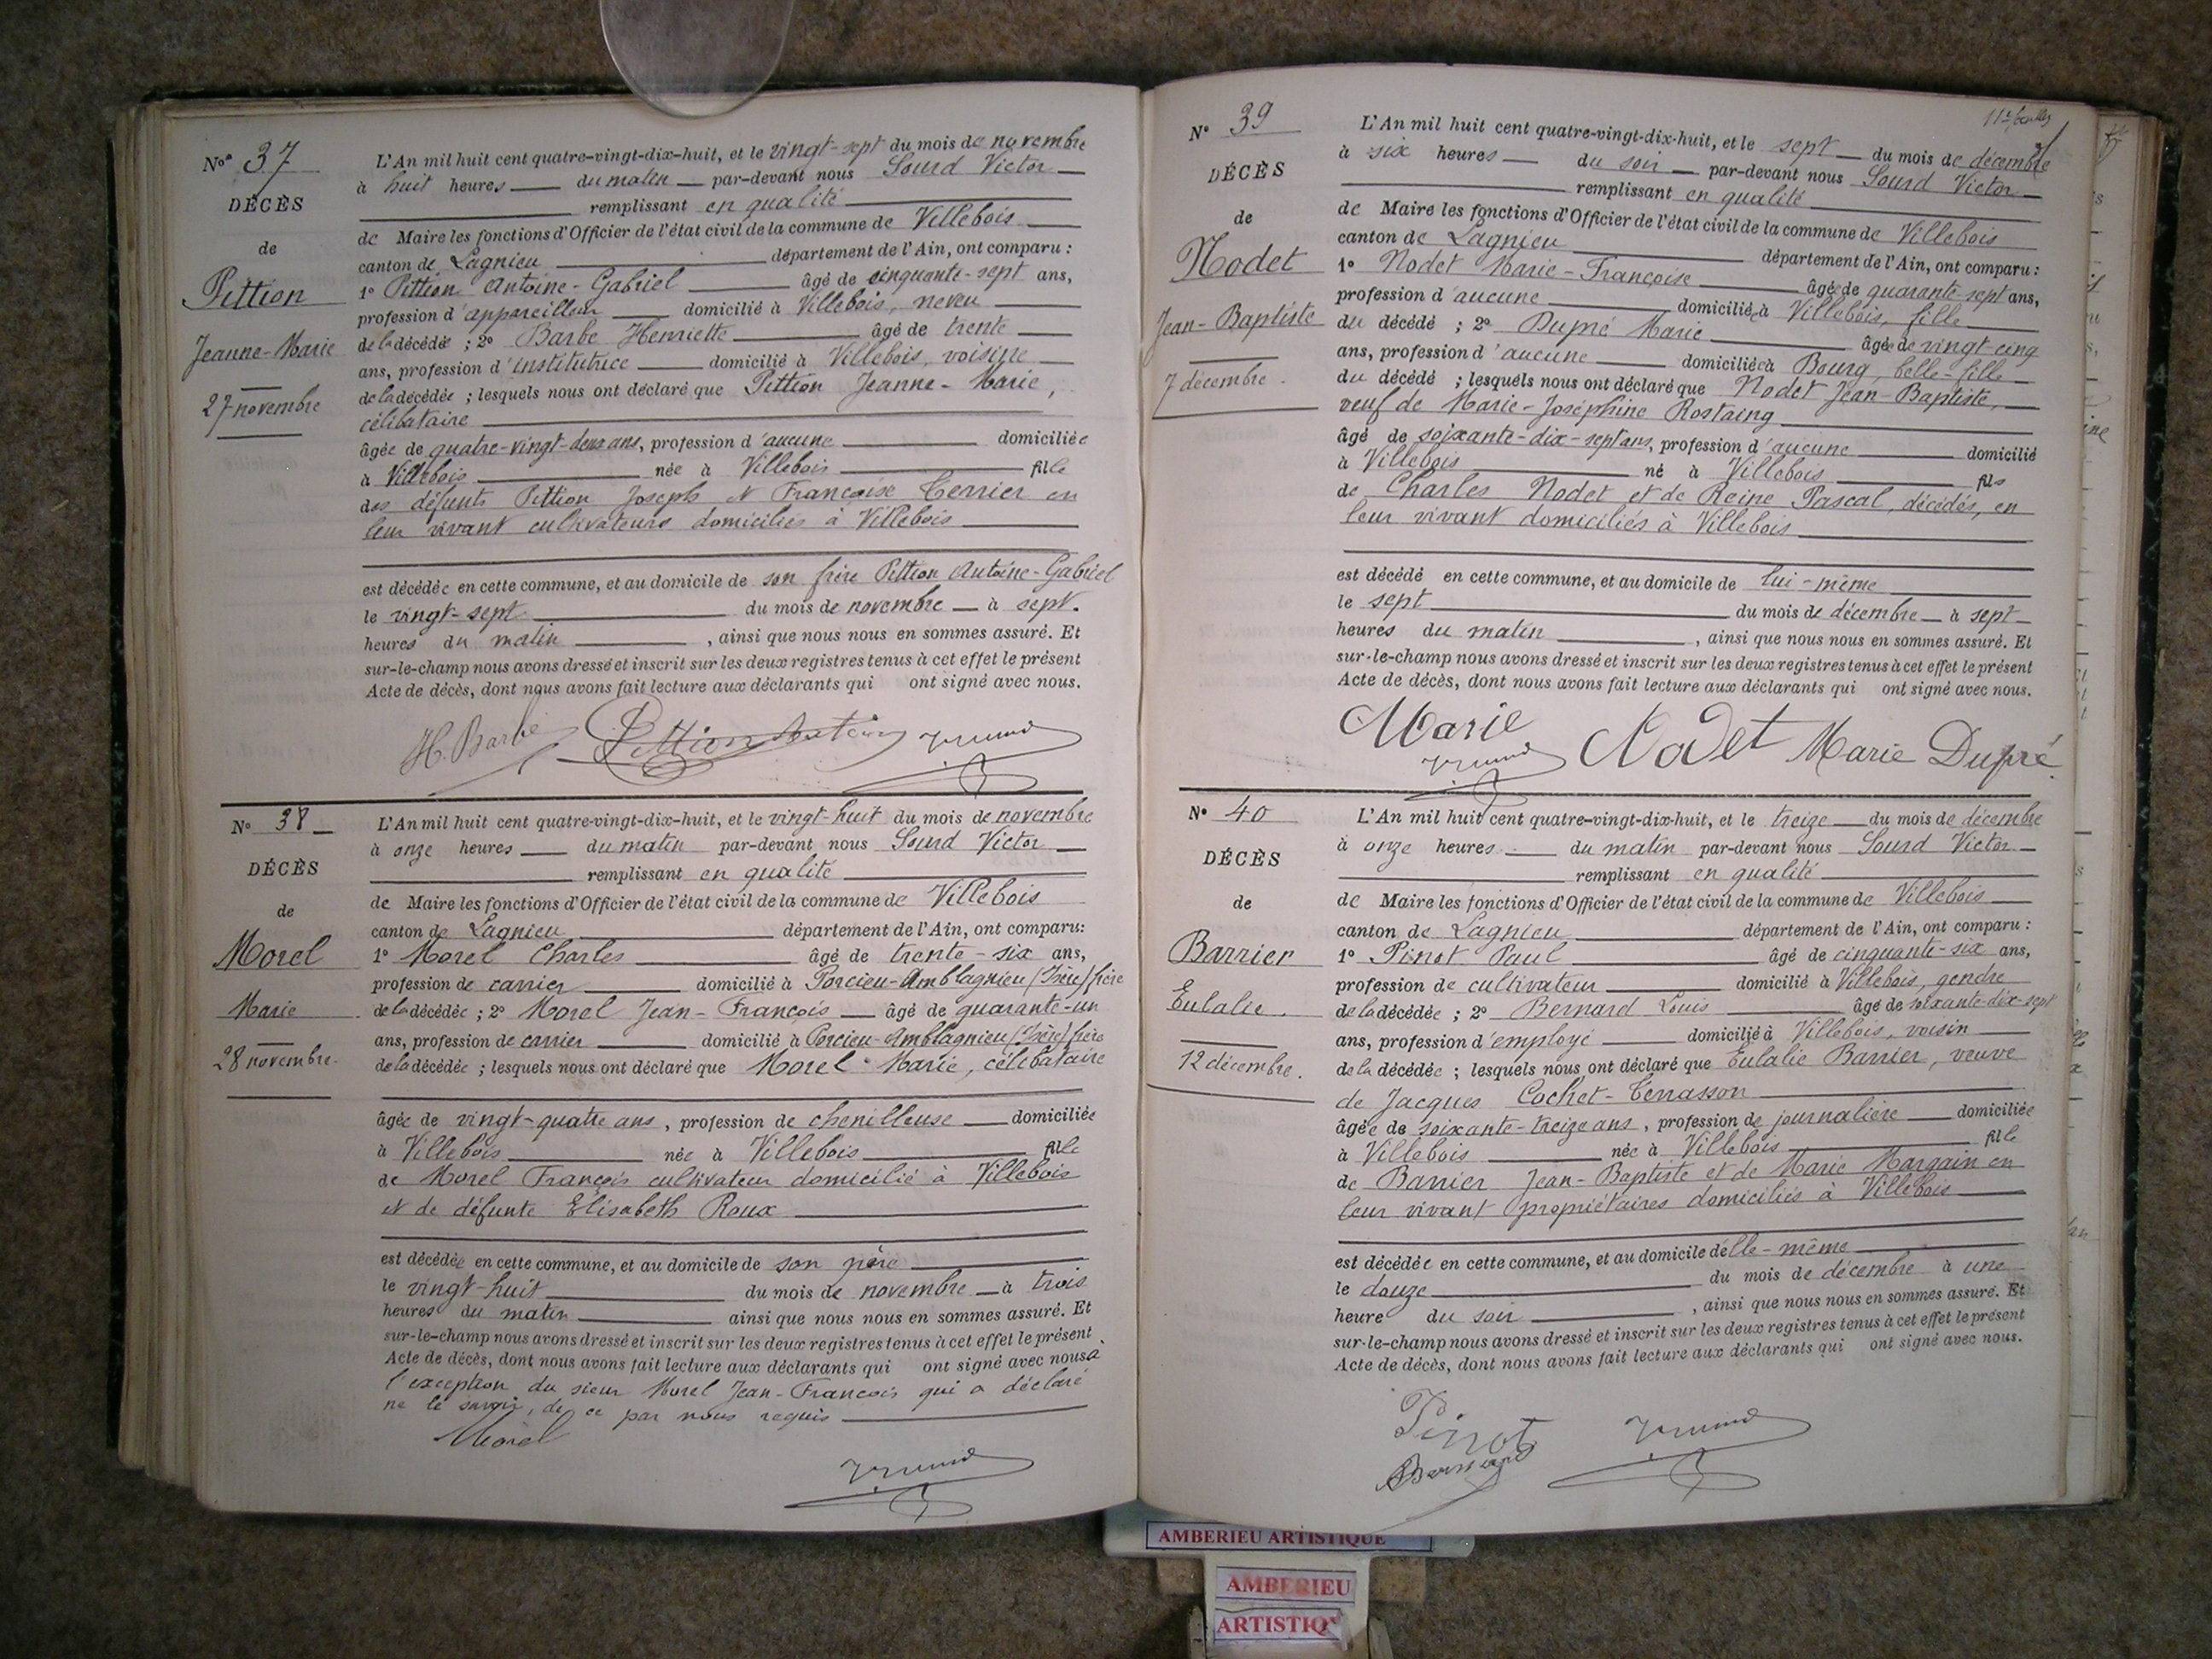 Nos 37
DÉCÈS
de
Pittion
Jeanne-Marie
27 novembre
L'An mil huit cent quatre-vingt-dix-huit, et le vingt-sept du mois de novembre
à huit heures du matin par-devant nous Sourd Victor
remplissant en qualité
de Maire les fonctions d'Officier de l'état civil de la commune de Villebois
canton de Lagnieu département de l'Ain, ont comparu :
1º Pittion Antoine-Gabriel âgé de cinquante-sept ans,
profession d'appareilleur domicilié à Villebois, neveu
de la décédée ; 2º Barbe Henriette âgé de trente
ans, profession d'institutrice domicilié à Villebois, voisine
de la décédée ; lesquels nous ont déclaré que Pittion Jeanne-Marie,
célibataire
âgée de quatre-vingt-deux ans, profession d'aucune domiciliée
à Villebois née à Villebois fille
des défunts Pittion Joseph et Françoise Terrier en
leur vivant cultivateurs domiciliés à Villebois
est décédée en cette commune, et au domicile de son frère Pittion Antoine-Gabriel
le vingt-sept du mois de novembre à sept
heures du matin , ainsi que nous nous en sommes assuré. Et
sur-le-champ nous avons dressé et inscrit sur les deux registres tenus à cet effet le présent
Acte de décès, dont nous avons fait lecture aux déclarants qui ont signé avec nous.
H. Barbe Pittion Antoine
Nº 38
DÉCÈS
de
Morel
Marie
28 novembre
L'An mil huit cent quatre-vingt-dix-huit, et le vingt-huit du mois de novembre
à onze heures du matin par-devant nous Sourd Victor
remplissant en qualité
de Maire les fonctions d'Officier de l'état civil de la commune de Villebois
canton de Lagnieu département de l'Ain, ont comparu :
1º Morel Charles âgé de trente-six ans,
profession de carrier domicilié à Porcieu-Amblagnieu (Isère) frère
de la décédée ; 2º Morel Jean-François âgé de quarante-un
ans, profession de carrier domicilié à Porcieu-Amblagnieu (Isère) frère
de la décédée ; lesquels nous ont déclaré que Morel Marie, célibataire
âgée de vingt-quatre ans, profession de chenilleuse domiciliée
à Villebois née à Villebois fille
de Morel François cultivateur domicilié à Villebois
et de défunte Elisabeth Roux
est décédée en cette commune, et au domicile de son père
le vingt-huit du mois de novembre à trois
heures du matin ainsi que nous nous en sommes assuré. Et
sur-le-champ nous avons dressé et inscrit sur les deux registres tenus à cet effet le présent
Acte de décès, dont nous avons fait lecture aux déclarants qui ont signé avec nous à
l'exception du sieur Morel Jean-François qui a déclaré
ne le savoir, de ce par nous requis
Morel
Nº 39
DÉCÈS
de
Nodet
Jean-Baptiste
7 décembre
L'An mil huit cent quatre-vingt-dix-huit, et le sept du mois de décembre
à six heures du soir par-devant nous Sourd Victor
remplissant en qualité
de Maire les fonctions d'Officier de l'état civil de la commune de Villebois
canton de Lagnieu département de l'Ain, ont comparu :
1º Nodet Marie-Françoise âgée de quarante-sept ans,
profession d'aucune domiciliée à Villebois, fille
du décédé ; 2º Dupré Marie âgée de vingt cinq
ans, profession d'aucune domiciliée à Bourg, belle-fille
du décédé ; lesquels nous ont déclaré que Nodet Jean-Baptiste,
veuf de Marie-Joséphine Rostaing
âgé de soixante-dix-sept ans, profession d'aucune domicilié
à Villebois né à Villebois fils
de Charles Nodet et de Reine Pascal, décédés, en
leur vivant domiciliés à Villebois
est décédé en cette commune, et au domicile de lui-même
le sept du mois de décembre à sept
heures du matin , ainsi que nous nous en sommes assuré. Et
sur-le-champ nous avons dressé et inscrit sur les deux registres tenus à cet effet le présent
Acte de décès, dont nous avons fait lecture aux déclarants qui ont signé avec nous.
Marie Nodet Marie Dupré
Nº 40
DÉCÈS
de
Barrier
Eulalie
12 décembre
L'An mil huit cent quatre-vingt-dix-huit, et le treize du mois de décembre
à onze heures du matin par-devant nous Sourd Victor
remplissant en qualité
de Maire les fonctions d'Officier de l'état civil de la commune de Villebois
canton de Lagnieu département de l'Ain, ont comparu :
1º Pinot Paul âgé de cinquante-six ans,
profession de cultivateur domicilié à Villebois, gendre
de la décédée ; 2º Bernard Louis âgé de soixante-dix-sept
ans, profession d'employé domicilié à Villebois, voisin
de la décédée ; lesquels nous ont déclaré que Eulalie Barrier, veuve
de Jacques Cochet-Terrasson
âgée de soixante-treize ans, profession de journalière domiciliée
à Villebois née à Villebois fille
de Barrier Jean-Baptiste et de Marie Margain en
leur vivant propriétaires domiciliés à Villebois
est décédée en cette commune, et au domicile d'elle-même
le douze du mois de décembre à une
heure du soir , ainsi que nous nous en sommes assuré. Et
sur-le-champ nous avons dressé et inscrit sur les deux registres tenus à cet effet le présent
Acte de décès, dont nous avons fait lecture aux déclarants qui ont signé avec nous.
Pinot
Bernard
AMBERIEU ARTISTIQUE
AMBERIEU
ARTISTIQ